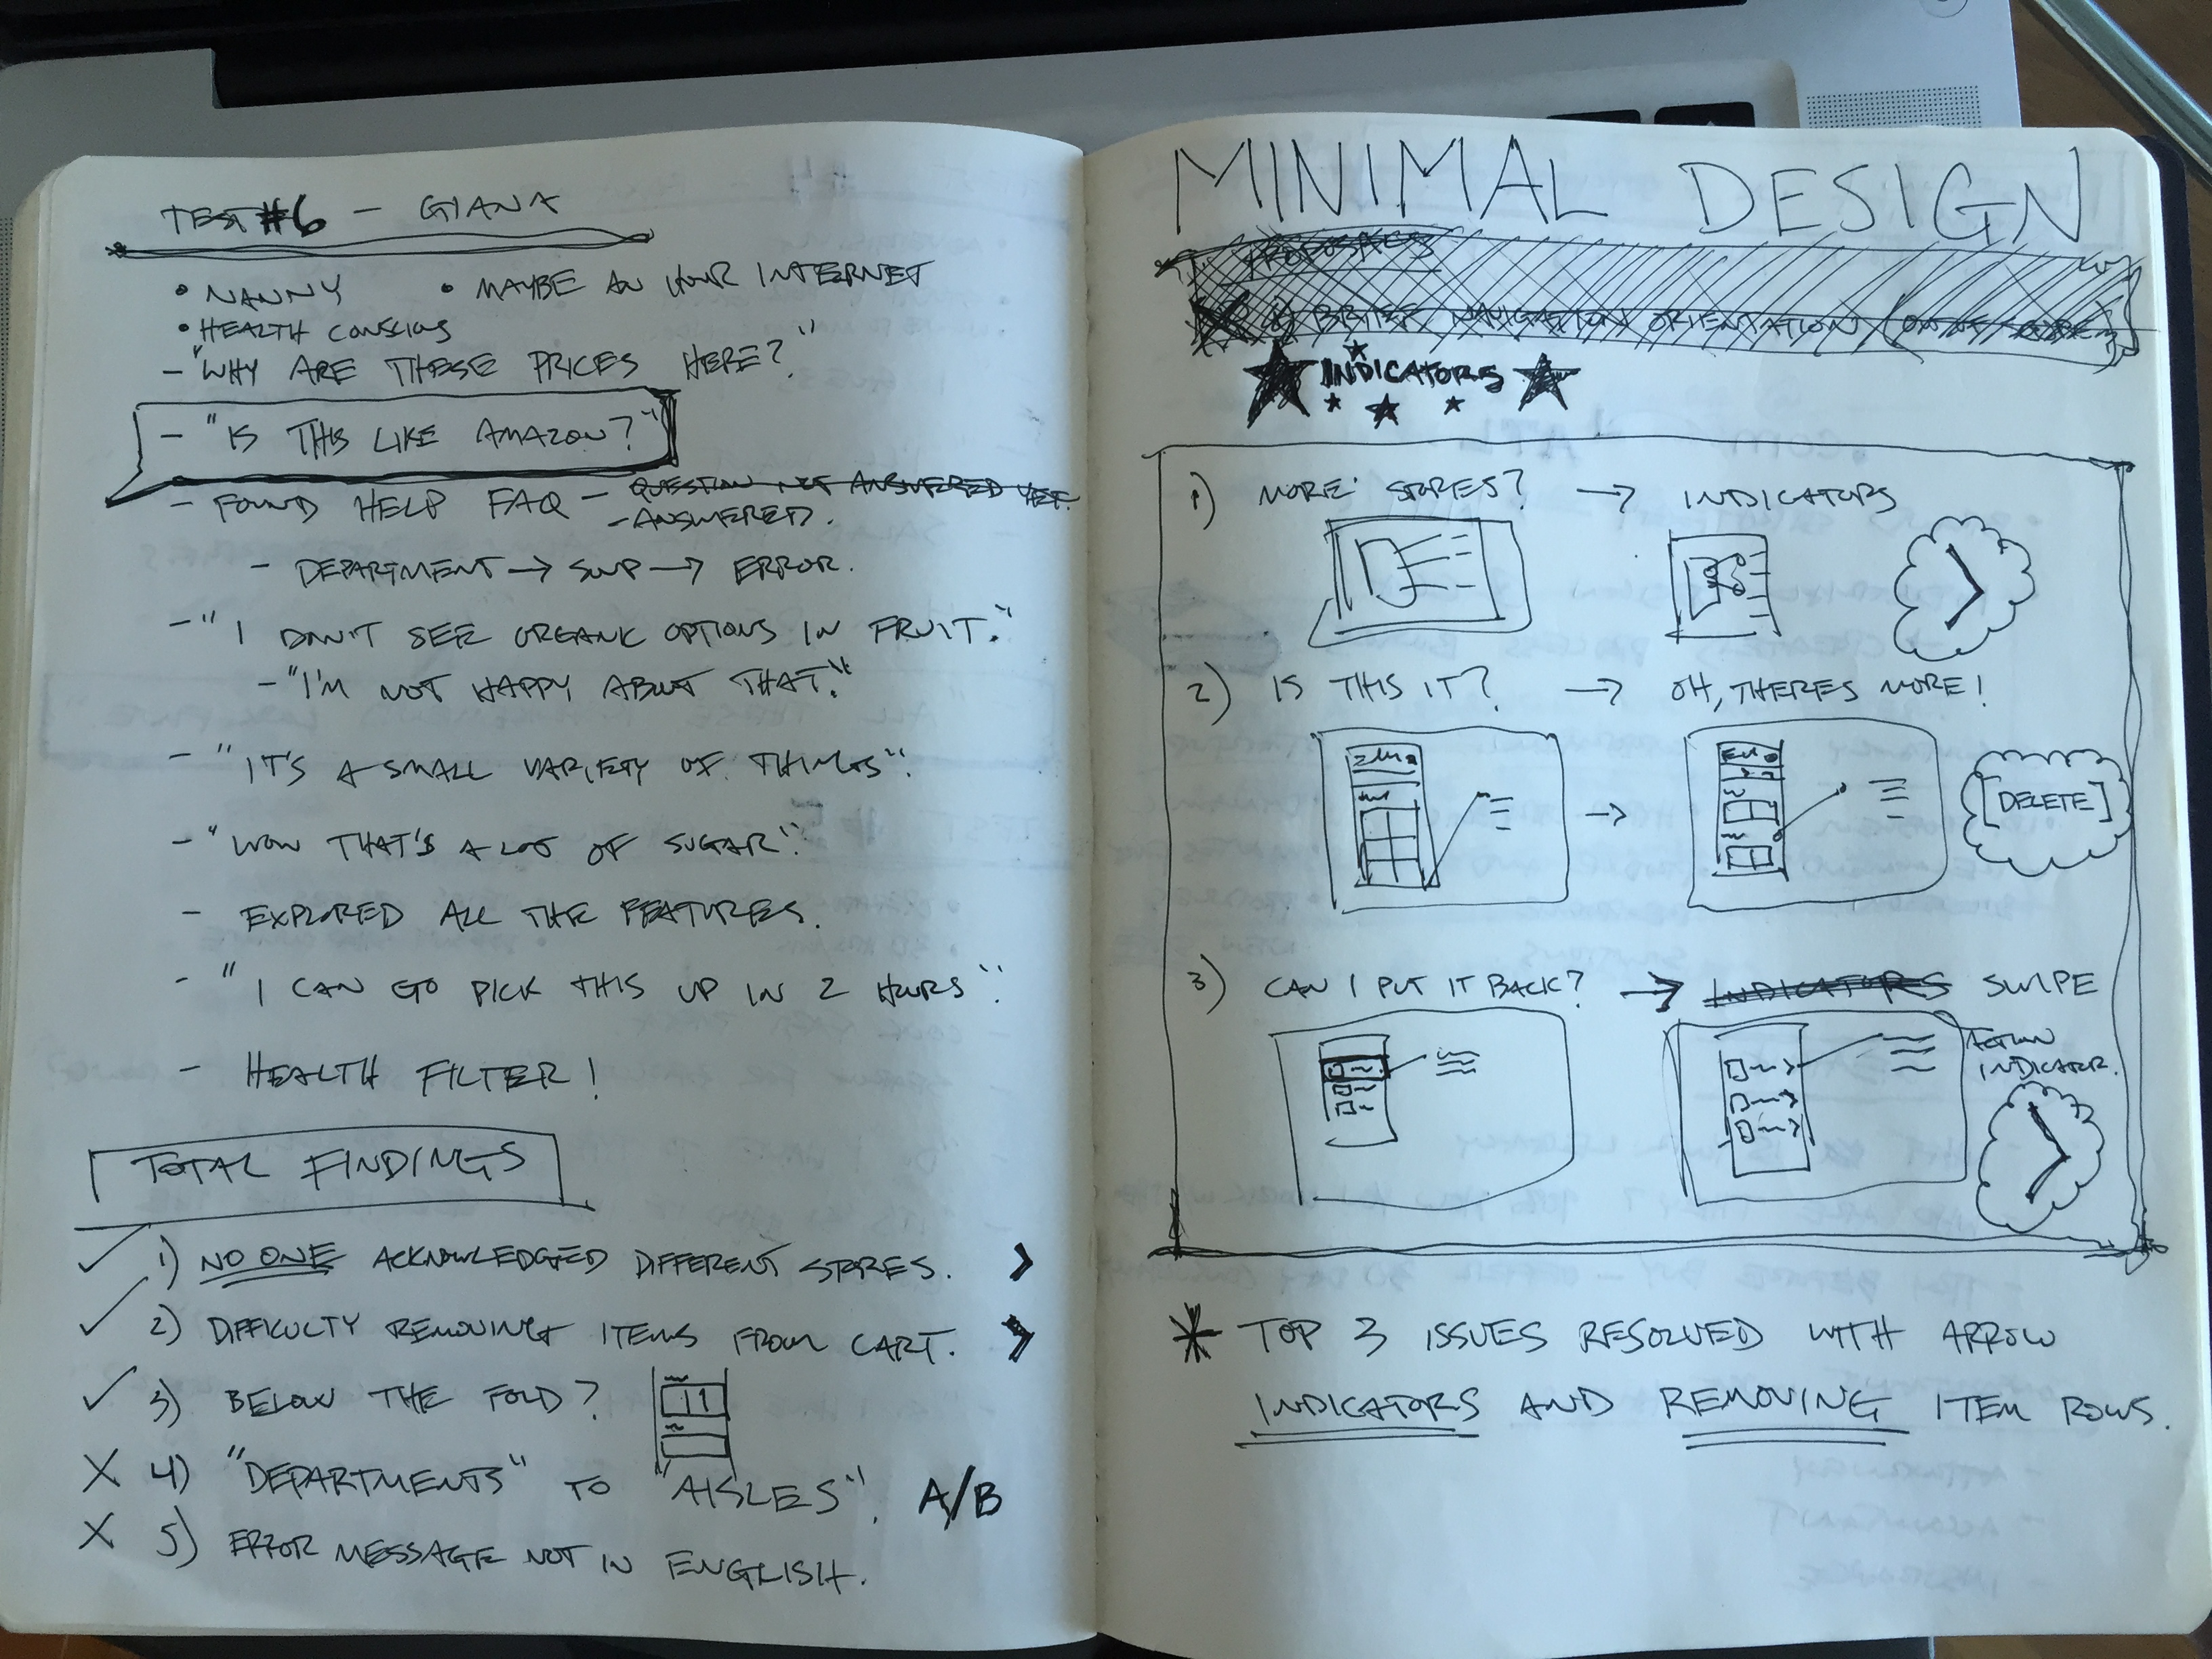 TEST #6 – GIANT
• NANNY • MAYBE INTERNET
• HEALTH CONSCIOUS
- "WHY ARE THESE PRICES HERE?"
- "IS THIS LIKE AMAZON?"
- FOUND HELP FAQ – QUESTION NOT ANSWERED YET.
- ANSWERED.
- DEPARTMENT → → ERROR.
- "I DON'T SEE ORGANIC OPTIONS IN FRUIT."
- "I'M NOT HAPPY ABOUT THAT."
- "IT'S A SMALL VARIETY OF THINGS"
- "WOW THAT'S A LOT OF SUGAR"
- EXPLORED ALL THE FEATURES.
- "I CAN GO PICK THIS UP IN 2 HOURS"
- HEALTH FILTER!
TOTAL FINDINGS
1) NO ONE ACKNOWLEDGED DIFFERENT STORES. >
2) DIFFICULTY REMOVING ITEMS FROM CART. >
3) BELOW THE FOLD?
X 4) "DEPARTMENTS" TO "AISLES". A/B
X 5) ERROR MESSAGE NOT IN ENGLISH.
MINIMAL DESIGN
NAVIGATION ORIENTATION
INDICATORS
1) MORE STORES? → INDICATORS
2) IS THIS IT? → OH, THERES MORE!
[DELETE]
3) CAN I PUT IT BACK? → INDICATORS SWIPE
AGAIN
INDICATOR.
* TOP 3 ISSUES RESOLVED WITH ARROW
INDICATORS AND REMOVING ITEM ROWS.